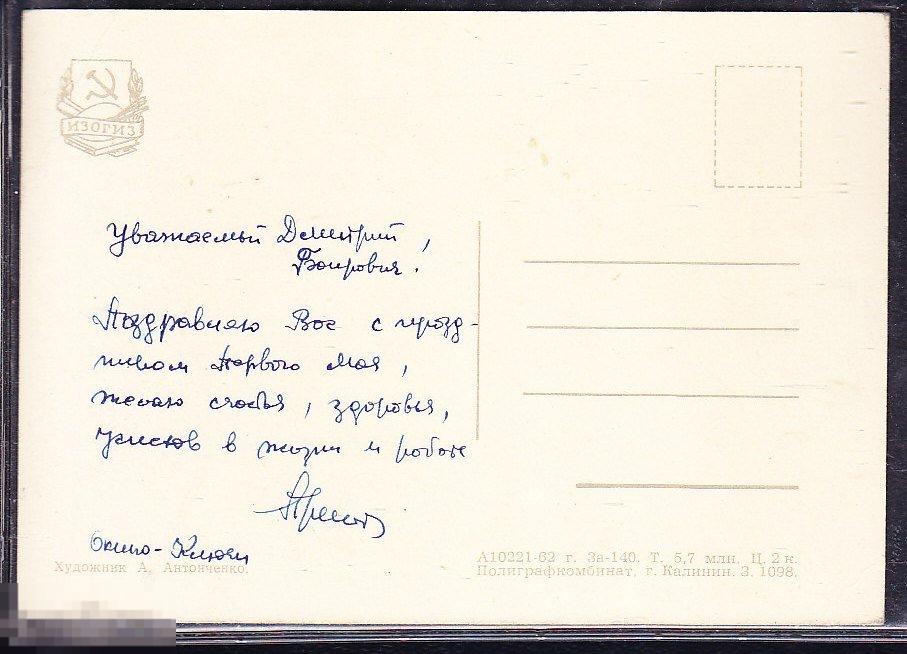 ИЗОГИЗ
Уважаемый Дмитрий
Борисович!
Поздравляю Вас с празд-
ником Первого Мая,
желаю счастья, здоровья,
успехов в жизни и работе
Окино-Ключи
Художник А. Антонченко.
А10221-62 г. За-140. Т. 5,7 млн. Ц. 2 к.
Полиграфкомбинат, г. Калинин. З. 1098.